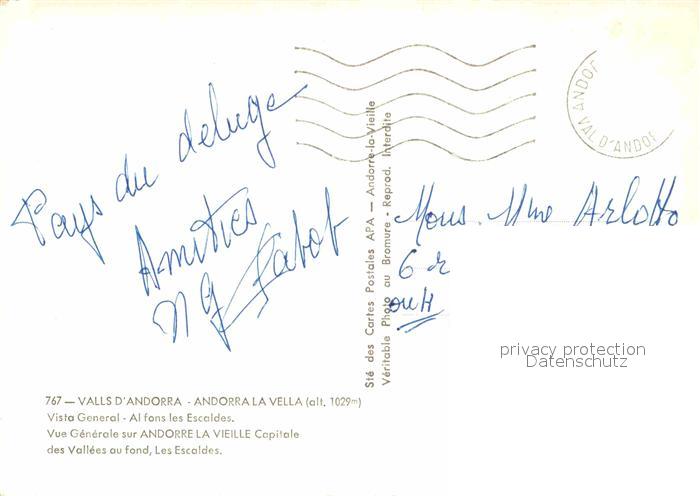 Pays du deluge
Amities
ANDOR
VAL D'ANDOR
Sté des Cartes Postales APA — Andorre-la-Vieille
Véritable Photo au Bromure - Reprod. Interdite
Mous. Mme Arlotto
6
privacy protection
Datenschutz
767 — VALLS D'ANDORRA - ANDORRA LA VELLA (alt. 1029m)
Vista General - Al fons les Escaldes.
Vue Générale sur ANDORRE LA VIEILLE Capitale
des Vallées au fond, Les Escaldes.